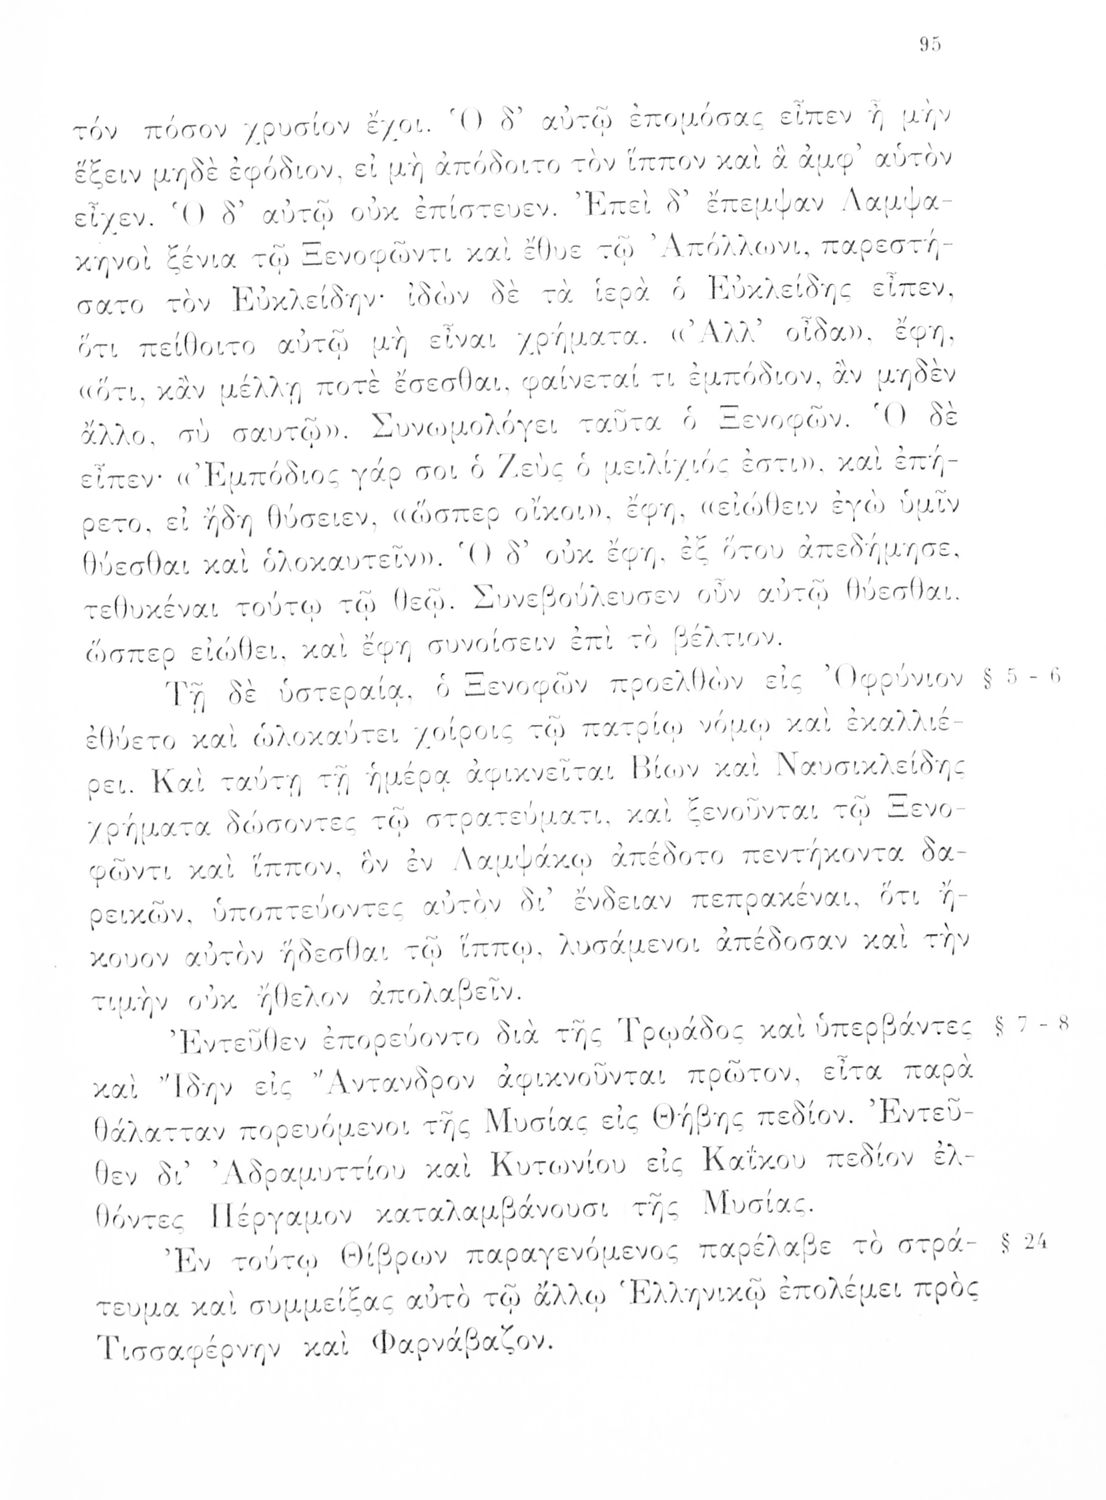 95
τόν πόσον χρυσίον ἔχοι. Ὁ δ’ αὐτῷ ἐπομόσας εἶπεν ἦ μὴν
ἕξειν μηδὲ ἐφόδιον, εἰ μὴ ἀπόδοιτο τὸν ἵππον καὶ ἃ ἀμφ’ αὑτὸν
εἶχεν. Ὁ δ’ αὐτῷ οὐκ ἐπίστευεν. Ἐπεὶ δ’ ἔπεμψαν Λαμψα-
κηνοὶ ξένια τῷ Ξενοφῶντι καὶ ἔθυε τῷ Ἀπόλλωνι, παρεστή-
σατο τὸν Εὐκλείδην· ἰδὼν δὲ τὰ ἱερὰ ὁ Εὐκλείδης εἶπεν,
ὅτι πείθοιτο αὐτῷ μὴ εἶναι χρήματα. «Ἀλλ’ οἶδα», ἔφη,
«ὅτι, κἂν μέλλῃ ποτὲ ἔσεσθαι, φαίνεταί τι ἐμπόδιον, ἂν μηδὲν
ἄλλο, σὺ σαυτῷ». Συνωμολόγει ταῦτα ὁ Ξενοφῶν. Ὁ δὲ
εἶπεν· «Ἐμπόδιος γάρ σοι ὁ Ζεὺς ὁ μειλίχιός ἐστι», καὶ ἐπή-
ρετο, εἰ ἤδη θύσειεν, «ὥσπερ οἴκοι», ἔφη, «εἰώθειν ἐγὼ ὑμῖν
θύεσθαι καὶ ὁλοκαυτεῖν». Ὁ δ’ οὐκ ἔφη, ἐξ ὅτου ἀπεδήμησε,
τεθυκέναι τούτῳ τῷ θεῷ. Συνεβούλευσεν οὖν αὐτῷ θύεσθαι,
ὥσπερ εἰώθει, καὶ ἔφη συνοίσειν ἐπὶ τὸ βέλτιον.
Τῇ δὲ ὑστεραίᾳ, ὁ Ξενοφῶν προελθὼν εἰς Ὀφρύνιον § 5 - 6
ἐθύετο καὶ ὡλοκαύτει χοίροις τῷ πατρίῳ νόμῳ καὶ ἐκαλλιέ-
ρει. Καὶ ταύτῃ τῇ ἡμέρᾳ ἀφικνεῖται Βίων καὶ Ναυσικλείδης
χρήματα δώσοντες τῷ στρατεύματι, καὶ ξενοῦνται τῷ Ξενο-
φῶντι καὶ ἵππον, ὃν ἐν Λαμψάκῳ ἀπέδοτο πεντήκοντα δα-
ρεικῶν, ὑποπτεύοντες αὐτὸν δι’ ἔνδειαν πεπρακέναι, ὅτι ἤ-
κουον αὐτὸν ἥδεσθαι τῷ ἵππῳ, λυσάμενοι ἀπέδοσαν καὶ τὴν
τιμὴν οὐκ ἤθελον ἀπολαβεῖν.
Ἐντεῦθεν ἐπορεύοντο διὰ τῆς Τρῳάδος καὶ ὑπερβάντες § 7 - 8
καὶ Ἴδην εἰς Ἄντανδρον ἀφικνοῦνται πρῶτον, εἶτα παρὰ
θάλατταν πορευόμενοι τῆς Μυσίας εἰς Θήβης πεδίον. Ἐντεῦ-
θεν δι’ Ἀδραμυττίου καὶ Κυτωνίου εἰς Καΐκου πεδίον ἐλ-
θόντες Πέργαμον καταλαμβάνουσι τῆς Μυσίας.
Ἐν τούτῳ Θίβρων παραγενόμενος παρέλαβε τὸ στρά- § 24
τευμα καὶ συμμείξας αὐτὸ τῷ ἄλλῳ Ἑλληνικῷ ἐπολέμει πρὸς
Τισσαφέρνην καὶ Φαρνάβαζον.